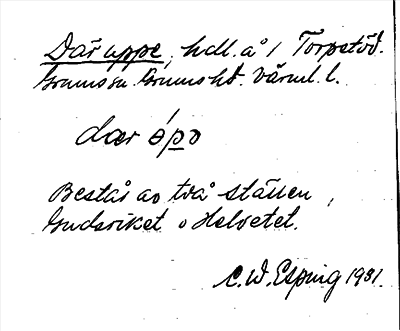 Där uppe, hdl. å 1 Torpstöd.
Grums sn. Grums hd. Värml. l.
dær ópo
Består av två ställen,
Gudsriket o Helvetet.
C. W. Esping 1931.